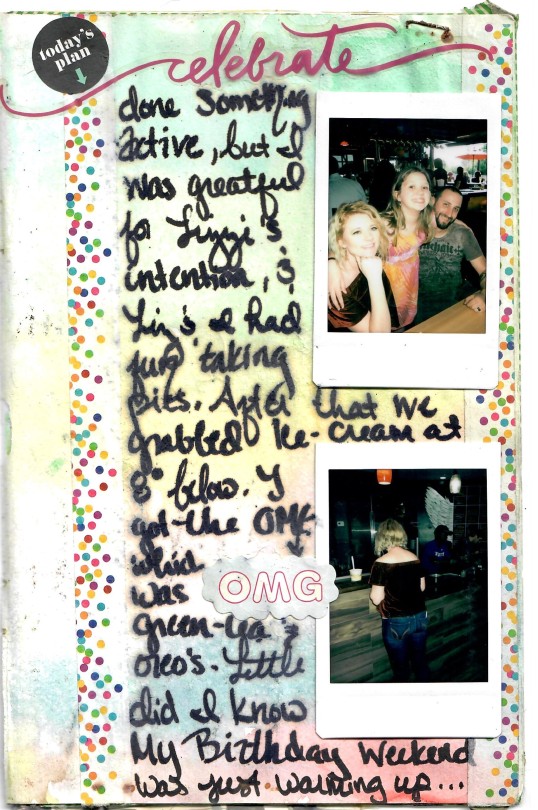 today's
plan
celebrate
done something
active, but I
was greatful
for Lizzi's
intention, &
Liz & I had
fun taking
pics. After that we
grabbed Ice-cream at
8° below. I
got the OMG
which
was
OMG
green-tea &
oreo's. Little
did I know
My Birthday Weekend
was just warming up...